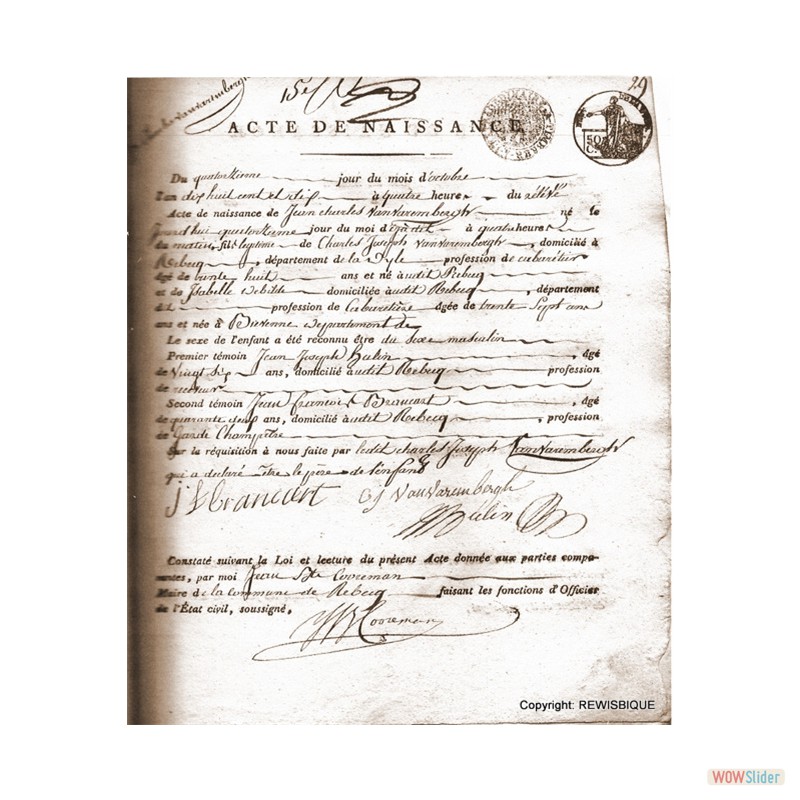 29
ACTE DE NAISSANCE
50
C.
Du quatorzieme jour du mois d'octobre
L'an dix huit cent et dix à quatre heures du relevé
Acte de naissance de Jean charles VanVarembergh né le
jourd'hui quatorzieme jour du mois d' à quatre heures
du matin, fils legitime de Charles Joseph VanVarembergh, domicilié à
Rebecq, département de la Dyle profession de cabaretier
âgé de trente huit ans et né audit Rebecq
et de Isabelle domiciliée audit Rebecq, département
dit profession de Cabaretière âgée de trente Sept ans
ans et née à Bierenne departement de
Le sexe de l'enfant a été reconnu être du Sexe masculin
Premier témoin Jean Joseph Hulin, âgé
de Vingt Six ans, domicilié audit Rebecq profession
de receveur
Second témoin Jean francois Brancart, âgé
de quarante deux ans, domicilié audit Rebecq, profession
de Garde Champêtre
Sur la réquisition à nous faite par ledit charles Joseph VanVarembergh
qui a declaré être le père de l'enfant
J f Brancart CJ VanVarembergh
Hulin
Constaté suivant la Loi et lecture du présent Acte donnée aux parties compa-
rantes, par moi Jean Bte Cooreman
Maire de la Commune de Rebecq faisant les fonctions d'Officier
de l'État civil, soussigné,
JB Cooreman
Copyright: REWISBIQUE
WOWSlider